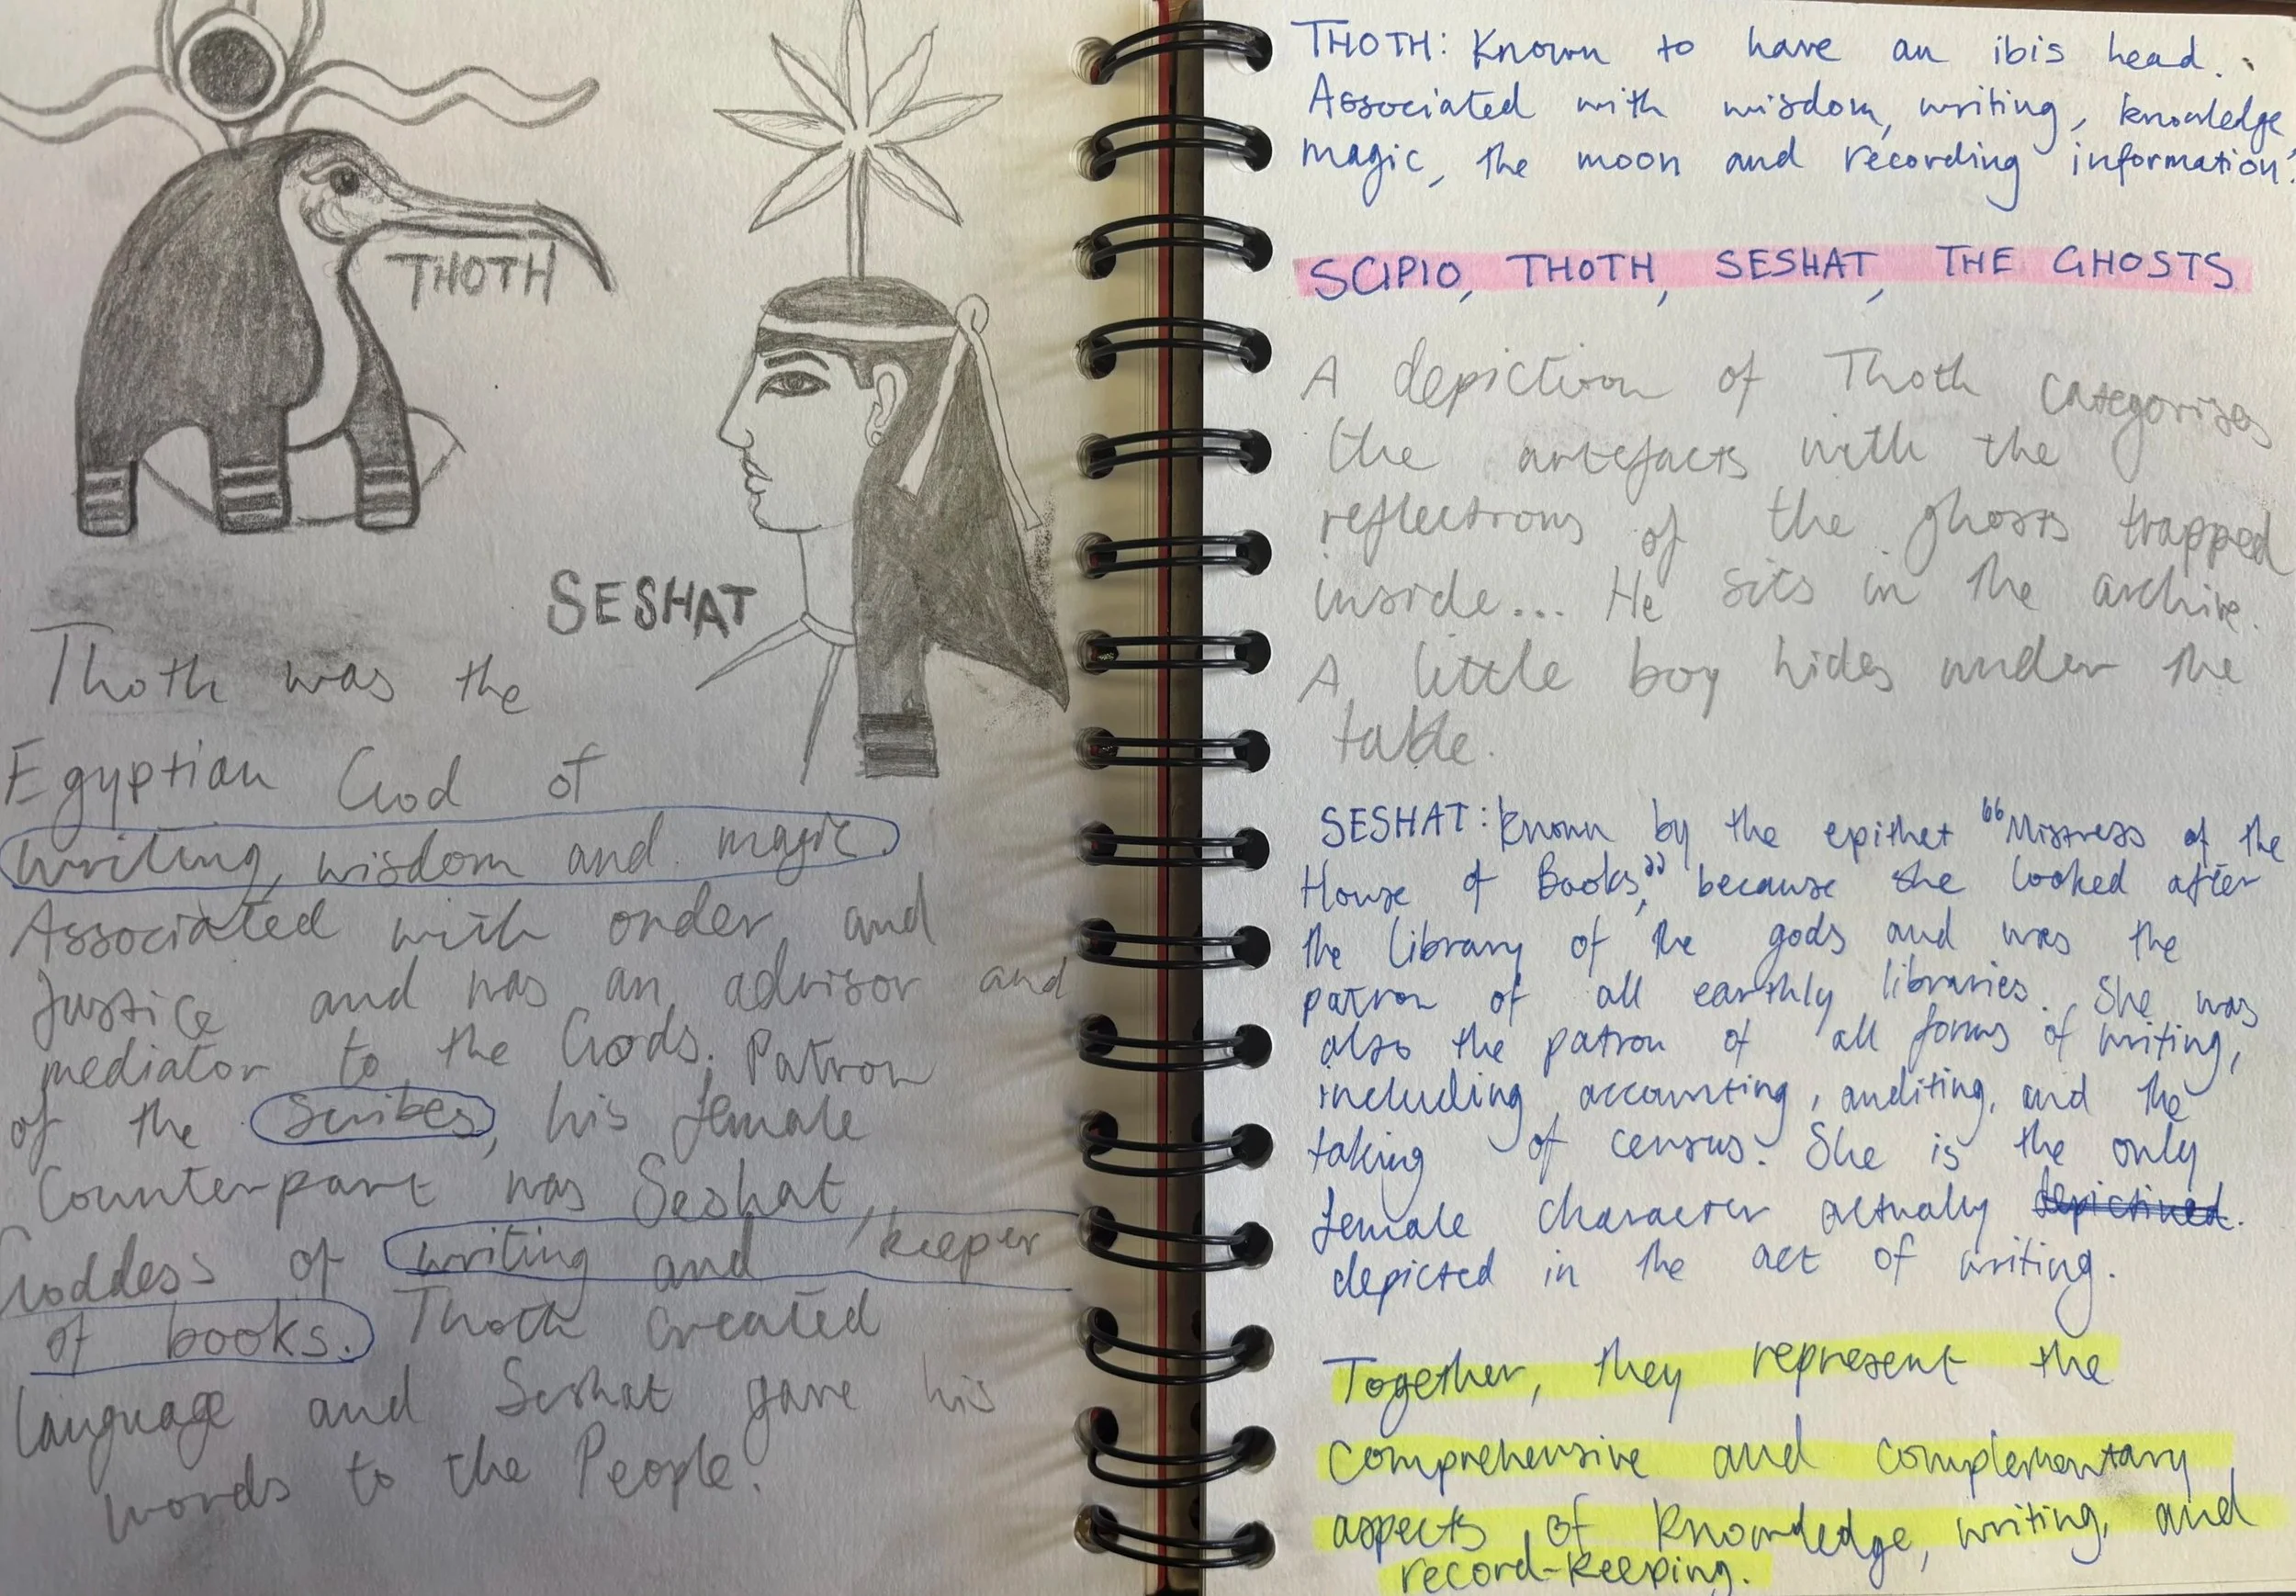 THOTH
SESHAT
Thoth was the
Egyptian God of
writing, wisdom and magic.
Associated with order and
Justice and was an advisor and
mediator to the Gods. Patron
of the Scribes, his female
Counterpart was Seshat,
Goddess of writing and keeper
of books. Thoth created
language and Seshat gave his
words to the People.
THOTH: Known to have an ibis head.
Associated with wisdom, writing, knowledge,
magic, the moon and recording information.
SCIPIO, THOTH, SESHAT, THE GHOSTS
A depiction of Thoth categorises
the artefacts with the
reflections of the ghosts trapped
inside... He sits in the archive.
A little boy hides under the
table.
SESHAT: Known by the epithet "Mistress of the
House of Books," because she looked after
the library of the gods and was the
patron of all earthly libraries. She was
also the patron of all forms of writing,
including accounting, auditing, and the
taking of census. She is the only
female character actually depictined.
depicted in the act of writing.
Together, they represent the
comprehensive and complementary
aspects of knowledge, writing, and
record-keeping.